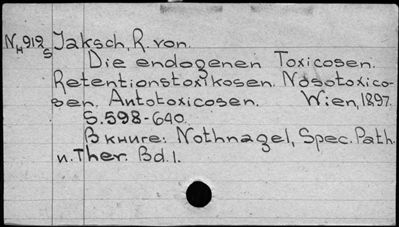 NH912S Jaksch, R. von.
Die endogenen Toxicosen.
Retentionstoxikosen. Nosotoxico-
sen. Autotoxicosen. Wien, 1897.
S. 598-640.
Вкниге: Nothnagel, Spec. Path.
u. Ther. Bd. 1.